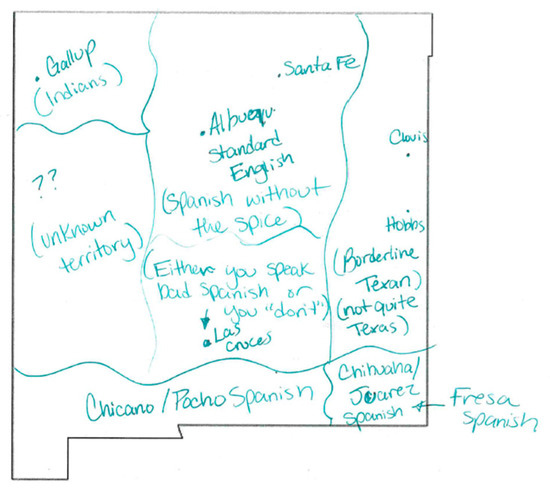 Gallup
(Indians)
Santa Fe
Albuequ.
Standard
English
(Spanish without
the Spice)
Clovis
Hobbs
??
(unknown
territory)
(Either you speak
bad Spanish or
you "don't")
Las
Cruces
(Borderline
Texan)
(not quite
Texas)
Chicano/Pocho Spanish
Chihuaha/
Juarez
Spanish
Fresa
Spanish